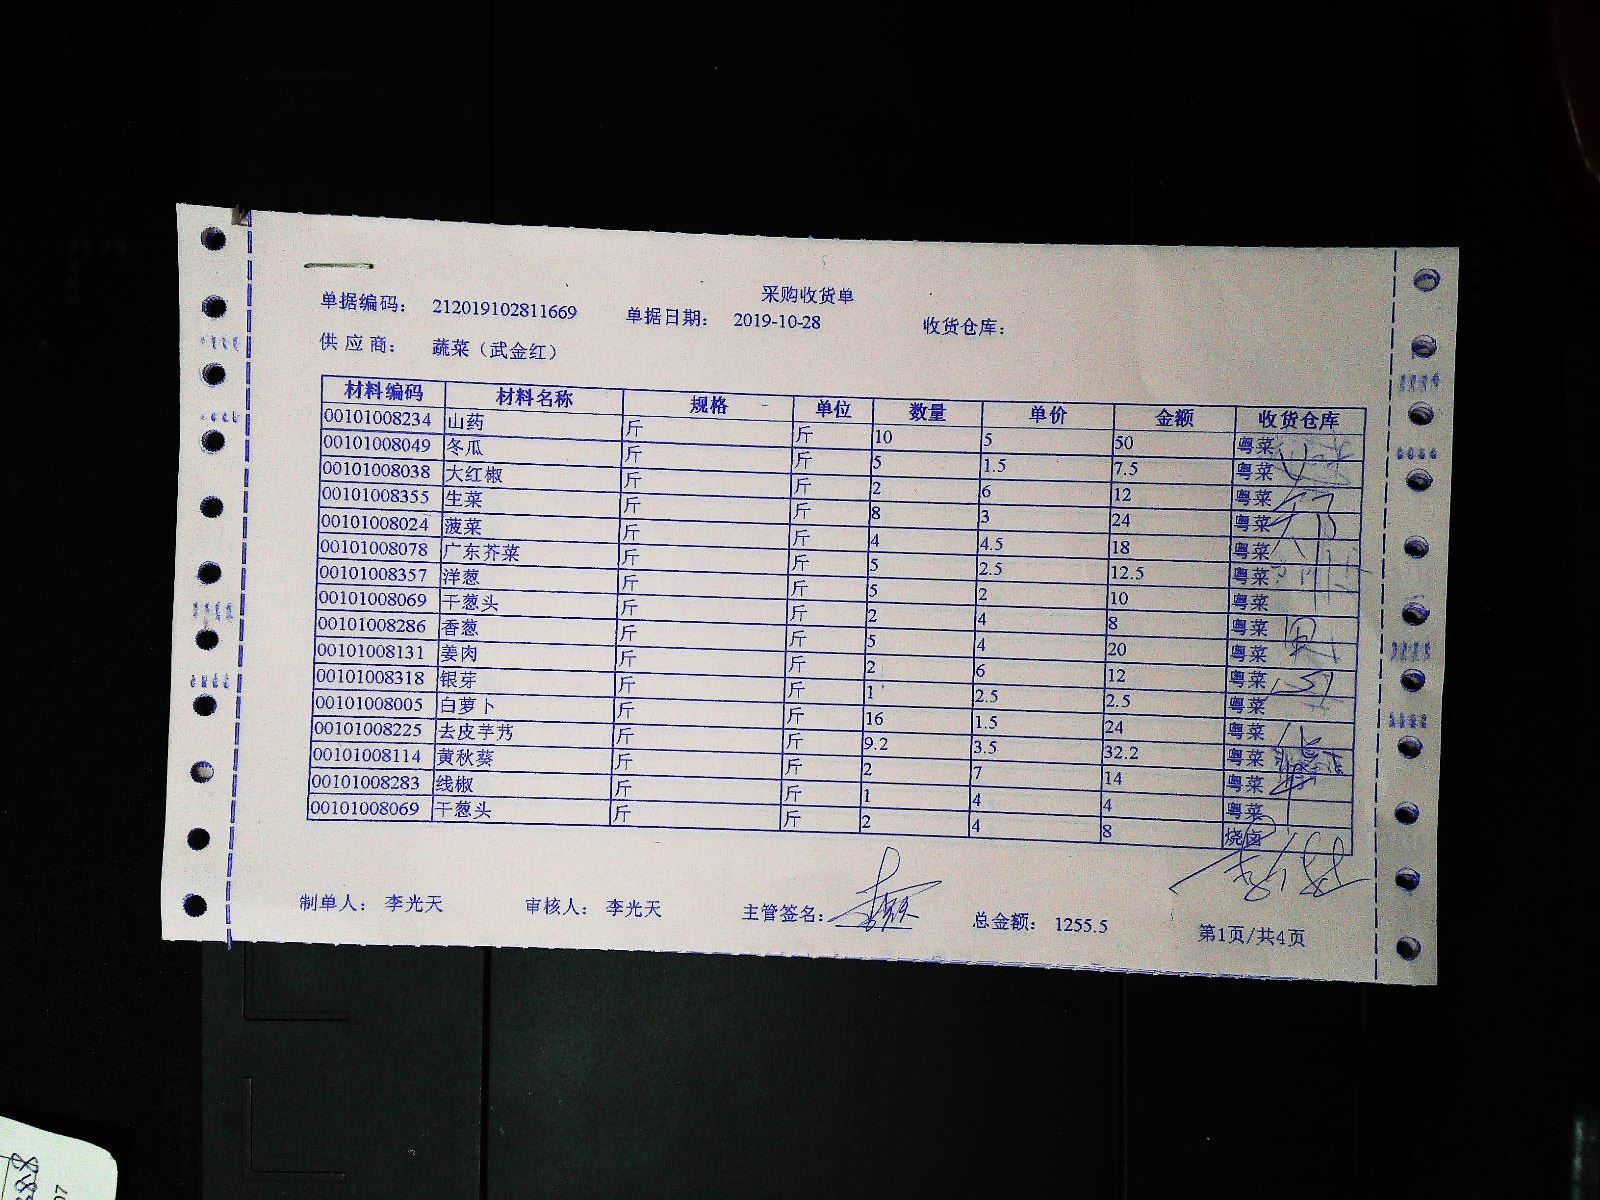 采购收货单
单据编码： 212019102811669 单据日期： 2019-10-28 收货仓库：
供应商： 蔬菜（武金红）
材料编码 材料名称 规格 单位 数量 单价 金额 收货仓库
00101008234 山药 斤 斤 10 5 50 粤菜
00101008049 冬瓜 斤 斤 5 1.5 7.5 粤菜
00101008038 大红椒 斤 斤 2 6 12 粤菜
00101008355 生菜 斤 斤 8 3 24 粤菜
00101008024 菠菜 斤 斤 4 4.5 18 粤菜
00101008078 广东芥菜 斤 斤 5 2.5 12.5 粤菜
00101008357 洋葱 斤 斤 5 2 10 粤菜
00101008069 干葱头 斤 斤 2 4 8 粤菜
00101008286 香葱 斤 斤 5 4 20 粤菜
00101008131 姜肉 斤 斤 2 6 12 粤菜
00101008318 银芽 斤 斤 1 2.5 2.5 粤菜
00101008005 白萝卜 斤 斤 16 1.5 24 粤菜
00101008225 去皮芋艿 斤 斤 9.2 3.5 32.2 粤菜
00101008114 黄秋葵 斤 斤 2 7 14 粤菜
00101008283 线椒 斤 斤 1 4 4 粤菜
00101008069 干葱头 斤 斤 2 4 8 烧卤
制单人： 李光天 审核人： 李光天 主管签名： 总金额： 1255.5 第1页/共4页